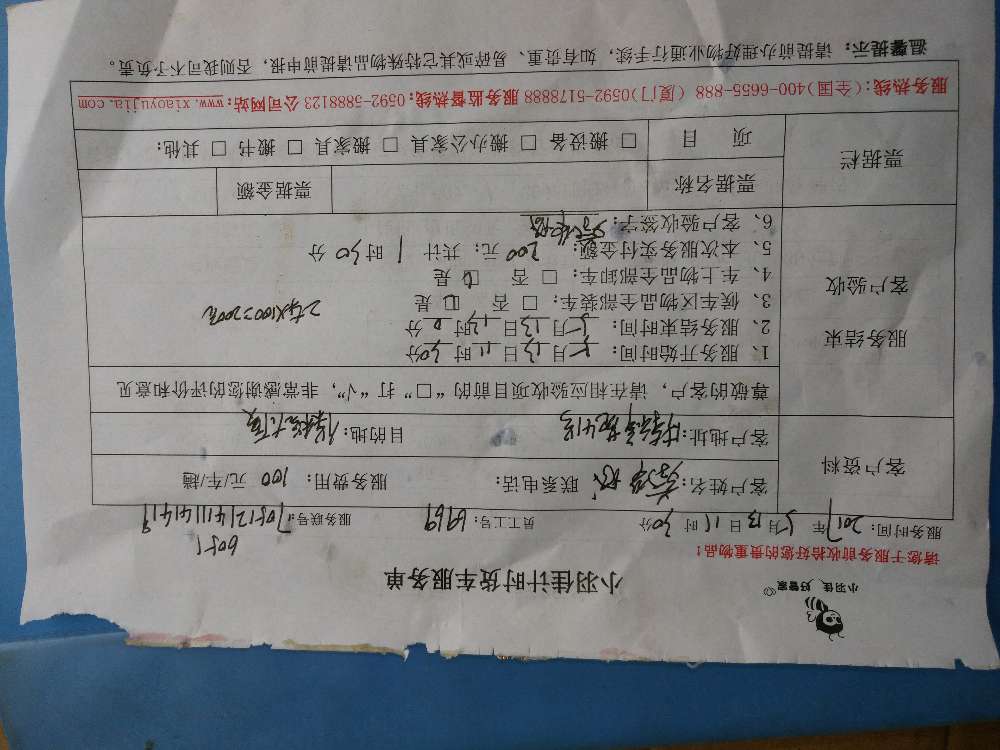 小羽佳 好管家
小羽佳计时货车服务单
请您于服务前收拾好您的贵重物品!
服务时间: 2017年5月13日11时30分 员工工号: 6969 服务联号:
客户资料
客户姓名: 联系电话: 服务费用: 100 元/车/趟
客户地址: 目的地:
尊敬的客户,请在相应验收项目前的“□”打“√”,非常感谢您的评价和意见
服务结束
客户验收
1、服务开始时间: 5月13日11时30分
2、服务结束时间: 5月13日1时0分
3、候车区物品全部装车: □ 否 ☑ 是
4、车上物品全部卸车: □ 否 ☑ 是
5、本次服务实付金额: 200 元; 共计 1 时30分
6、客户验收签字:
票据栏
票据名称 票据金额
项 目 □ 搬设备 □ 搬办公家具 □ 搬家具 □ 搬书 □ 其他:
服务热线:(全国)400-6655-888 (厦门)0592-5178888 服务监督热线:0592-5888123 公司网站:www.xiaoyujia.com
温馨提示: 请提前办理好物业通行手续, 如有贵重、易碎或其它特殊物品请提前申报, 否则我司不予负责。